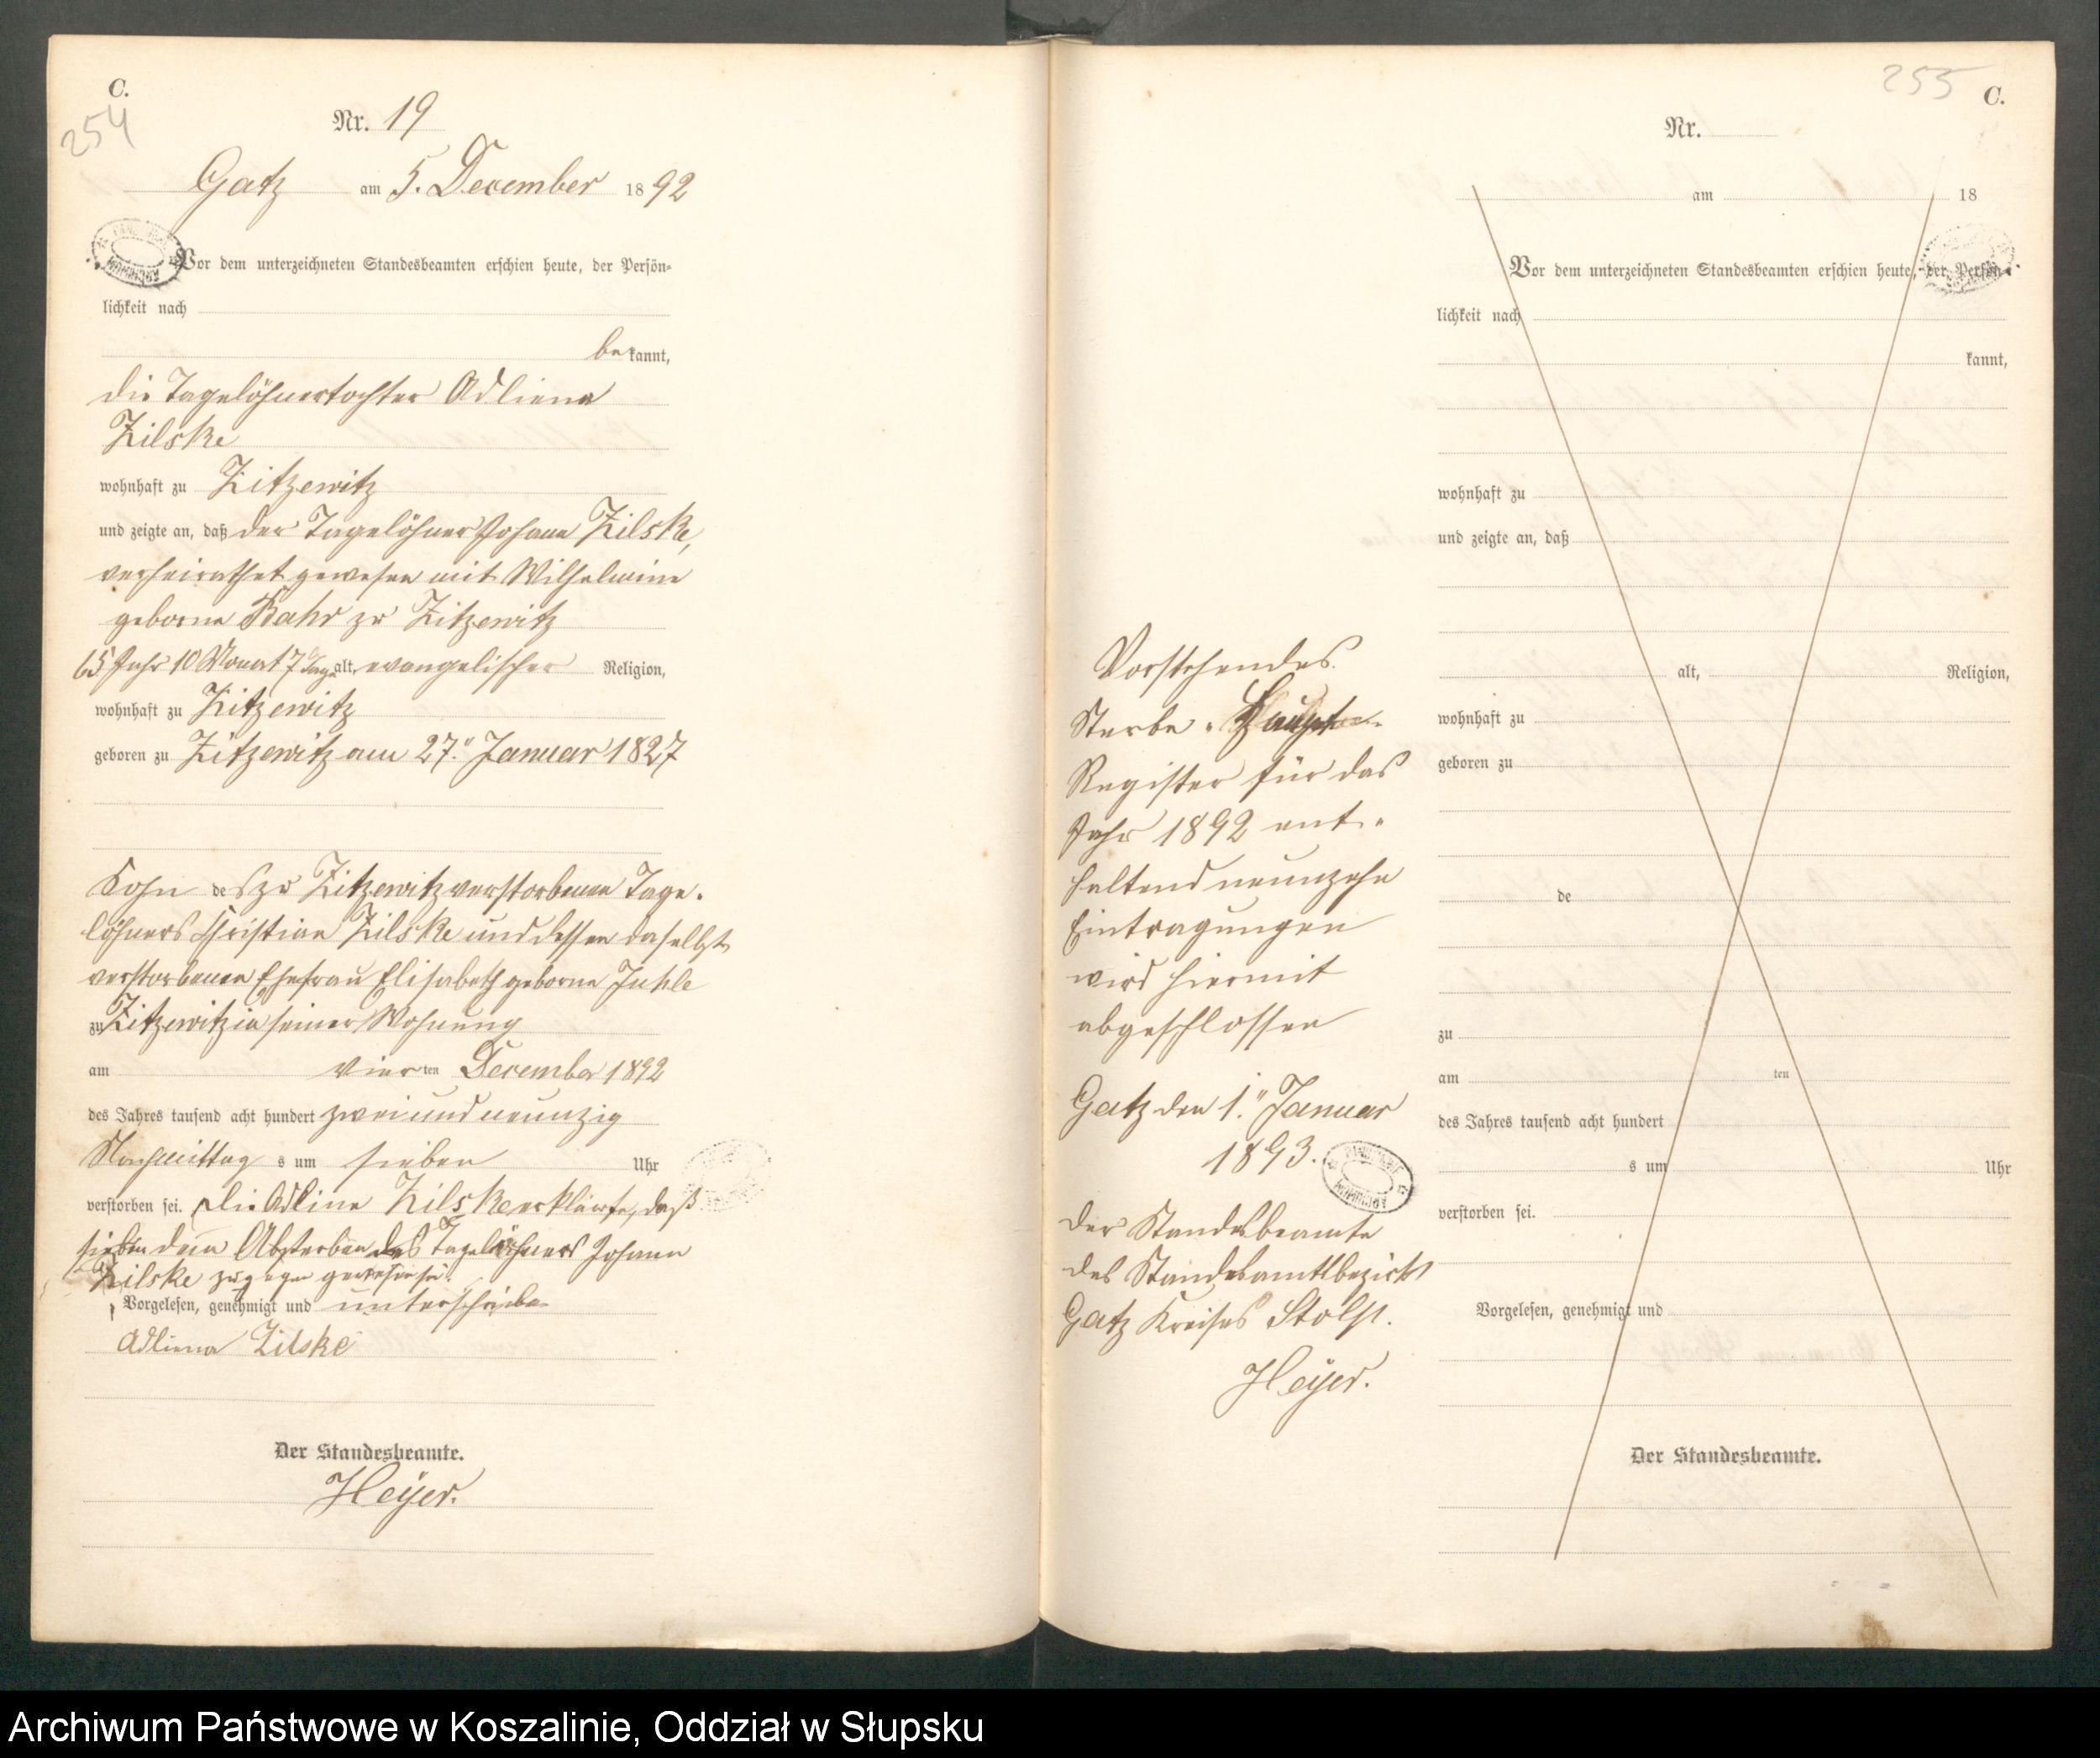 C.
254
Nr. 19
Gatz am 5. December 1892
Vor dem unterzeichneten Standesbeamten erschien heute, der Persön=
lichkeit nach
bekannt,
die Tagelöhnertochter Adliene
Zilske
wohnhaft zu Zitzewitz
und zeigte an, daß der Tagelöhner Johann Zilske,
verheirathet gewesen mit Wilhelmine
geborne Bahr zu Zitzewitz
65 Jahr 10 Monat 7 Tage alt, evangelischer Religion,
wohnhaft zu Zitzewitz
geboren zu Zitzewitz am 27. Januar 1827
Sohn des zu Zitzewitz verstorbenen Tage-
löhners Christian Zilske und dessen daselbst
verstorbenen Ehefrau Elisabeth geborne
zu Zitzewitz in seiner Wohnung
am vierten December 1892
des Jahres tausend acht hundert zwei und neunzig
Nachmittags um sieben Uhr
verstorben sei. Die Adline Zilske erklärte, daß
sie bei dem Absterben des Tagelöhners Johann
Zilske zugegen gewesen sei.
Vorgelesen, genehmigt und unterschrieben
Adliena Zilske
Der Standesbeamte.
Heyer.
Vorstehendes
Sterbe - Haupt-
Register für das
Jahr 1892 ent-
haltend neunzehn
Eintragungen
wird hiermit
abgeschlossen
Gatz den 1. Januar
1893.
Der Standesbeamte
des Standesamtsbezirks
Gatz Kreises Stolp.
Heyer.
255
C.
Nr.
am 18
Vor dem unterzeichneten Standesbeamten erschien heute, der Persön=
lichkeit nach
kannt,
wohnhaft zu
und zeigte an, daß
alt, Religion,
wohnhaft zu
geboren zu
de
zu
am ten
des Jahres tausend acht hundert
s um Uhr
verstorben sei.
Vorgelesen, genehmigt und
Der Standesbeamte.
Archiwum Państwowe w Koszalinie, Oddział w Słupsku